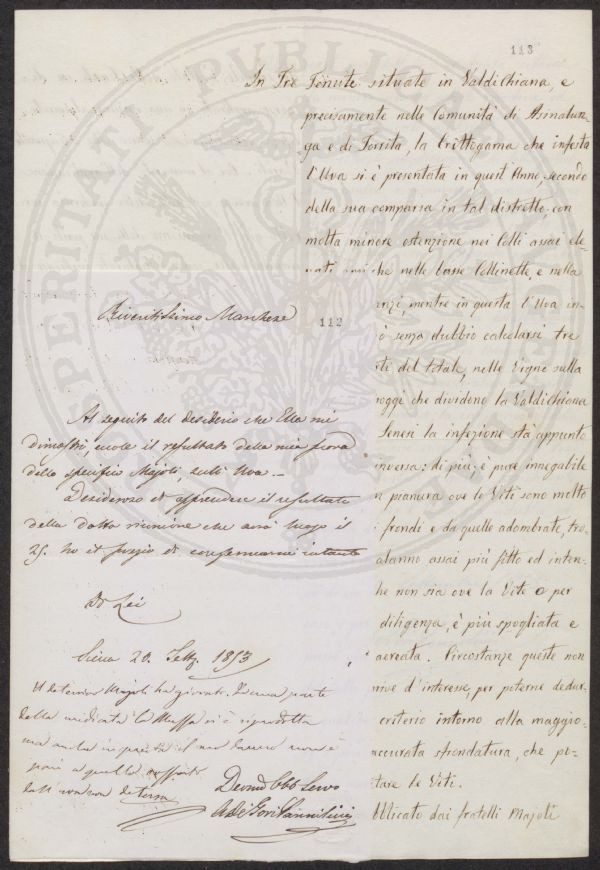 113
In Tre Tenute situate in Valdichiana, e
precisamente nelle Comunità di Asinalun-
ga e di Torrita, la Crittogama che infesta
l'Uva si è presentata in quest'Anno, secondo
della sua comparsa in tal distretto con
molta minore estenzione nei Colli assai ele-
vati che nelle basse Collinette, e nella
nzi, mentre in questa l'Uva in-
ò senza dubbio calcolarsi tre
rti del totale, nelle Vigne sulla
oggi che dividono la Valdichiana
Senesi la infezione stà appunto
inversa; di più, è pure innegabile
n pianura ove le Viti sono molto
i frondi e da quelle adombrate, tro-
alanno assai più fitto ed inten-
he non sia ove la Vite o per
diligenza, è più spogliata e
aereata. Circostanze queste non
rive d'interesse, per poterne dedur
criterio intorno alla maggio-
accurata sfrondatura, che po-
tare le Viti.
bblicato dai fratelli Majoli
112
Riveritissimo Marchese
Al seguito del desiderio che Ella mi
dimostrò, ecole il resultato della mia prova
dello specifico Majoli, sull'Uva.-
Desideroso di apprendere il resultato
della dotta riunione che avrà luogo il
25. ho il pregio di confermarmi intanto
Di Lei
Siena 20. Sett. 1853
ma anche in questa il
pari a quello
Devmo Obb Servo
PROSPERITATI PUBLICAE